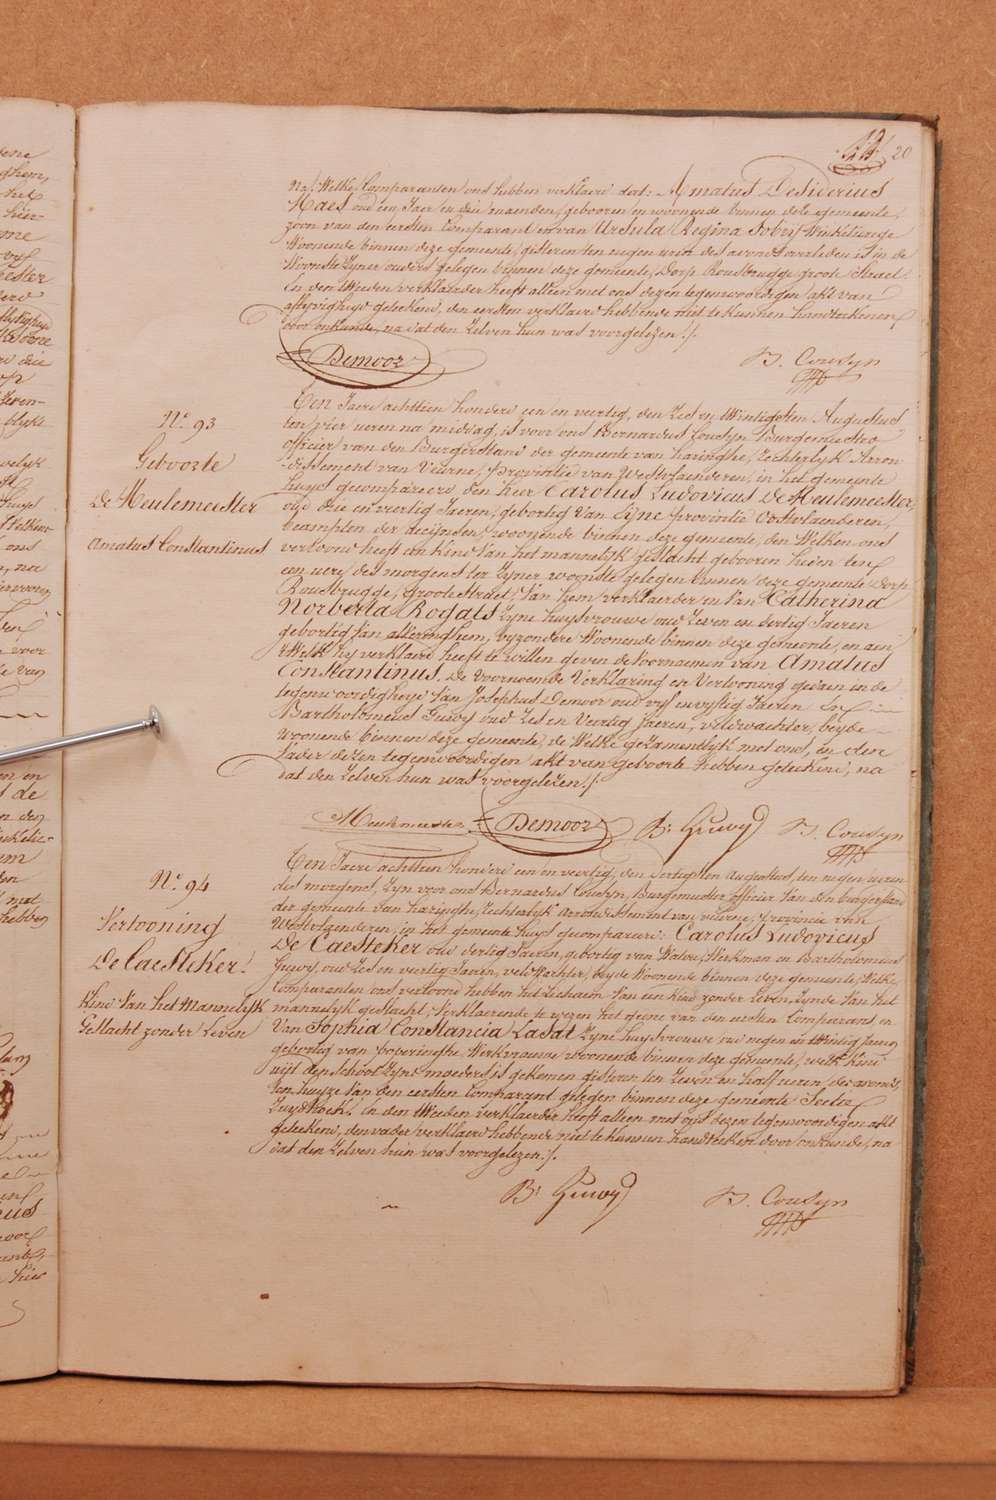 19
20
Na, Welke Comparanten ons hebben verklaerd dat: Amatus Desiderius
Maes oud een Jaer en drie maenden, gebooren en woonende binnen deze gemeente,
zoon van den eersten Comparant en van Ursula Regina Sobry Winkelierige
Woonende binnen deze gemeente, gisteren ten negen uren des avonds overleden is in de
Woonste Zyner ouders gelegen binnen deze gemeente, Dorp Rousbrugge groote Straet
En den tweeden verklaerder heeft alleen met ons dezen tegenwoordigen akt van
aflyvigheyd geteekend, den eersten verklaerd hebbende niet te kunnen handteekenen
door onkunde, na dat den Zelven hun was voorgelezen ./.
Demoor
B. Cousyn
N.o 93
Geboorte
De Meulemeester
Amatus Constantinus
Ten Jaere achttien honderd een en veertig, den Zes en Twintigsten Augustus
ten vier ueren na middag, is voor ons Bernardus Cousyn Burgemeester
officier van den Burgerstand der gemeente van haringhe, Rechterlyk Arron-
dissement van Veurne, Provintie van Westvlaenderen, in het gemeente
huys gecompareerd den heer Carolus Ludovicus De Meulemeester,
oud drie en veertig Jaeren, gebortig van Eyne provintie Oostvlaenderen,
beampten der accynsen, woonende binnen deze gemeente, den Welken ons
vertoond heeft een Kind van het mannelyk geslacht gebooren heden ten
een uere des morgens ter Zyner woonste gelegen binnen deze gemeente Dorp
Rousbrugge, groote straet, van hem verklaerder en van Catherina
Norberta Rogats Zyne huysvrouwe oud Zeven en dertig Jaeren
gebortig van alveringhem, byzondere Woonende binnen deze gemeente, en aen
Welk hy verklaerd heeft te willen geven de Voornaemen van Amatus
Constantinus. De Voornoemde Verklaring en Vertooning gedaen in de
tegenwoordigheyd van Josephus Demoor oud vyf en vyftig Jaeren en
Bartholomeus Guwy oud Zes en Veertig Jaeren, veldwachter, beyde
woonende binnen deze gemeente, de Welke gezamentlyk met ons, en den
Vader dezen tegenwoordigen akt van geboorte hebben geteekend, na
dat den Zelven hun was voorgelezen ./.
Meulemeester
Demoor
B: Guwy
B. Cousyn
N.o 94
Vertooning
De Caesteker
Kind Van het Mannelyk
Geslacht zonder Leven
Ten Jaere achttien honderd een en veertig, den dertigsten Augustus, ten negen ueren
des morgens, Zyn voor ons Bernardus Cousyn, Burgemeester officier Van den burgerstand
der gemeente van haringhe, Rechterlyk arrondissement van veurne, provincie van
Westvlaenderen, in het gemeente huys gecompareerd: Carolus Ludovicus
De Caesteker oud dertig Jaeren, gebortig van Watou, Werkman en Bartholomeus
Guwy, oud Zes en veertig Jaeren, veldwachter, beyde Woonende binnen deze gemeente, Welke
Comparanten ons vertoond hebben het Lichaem Van een Kind zonder Leven, Zynde Van het
mannelyk geslacht, Verklaerende te wezen het gene van den eersten Comparant en
Van Sophia Constancia Lasat Zyne huysvrouwe oud negen en twintig Jaeren
gebortig van poperinghe Werkvrouwe woonende binnen deze gemeente, welk Kind
uyt den schoot Zyne moeders is gekomen gisteren ten Zeven en half ueren, des avonds,
ten huyze Van den eersten Comparant gelegen binnen deze gemeente Sectie
Zuydhoek. en den tweeden verklaerder heeft alleen met ons dezen tegenwoordigen akt
geteekend, den vader verklaerd hebbende niet te kunnen handteeken door onkunde, na
dat den Zelven hun was voorgelezen ./.
B: Guwy
B. Cousyn